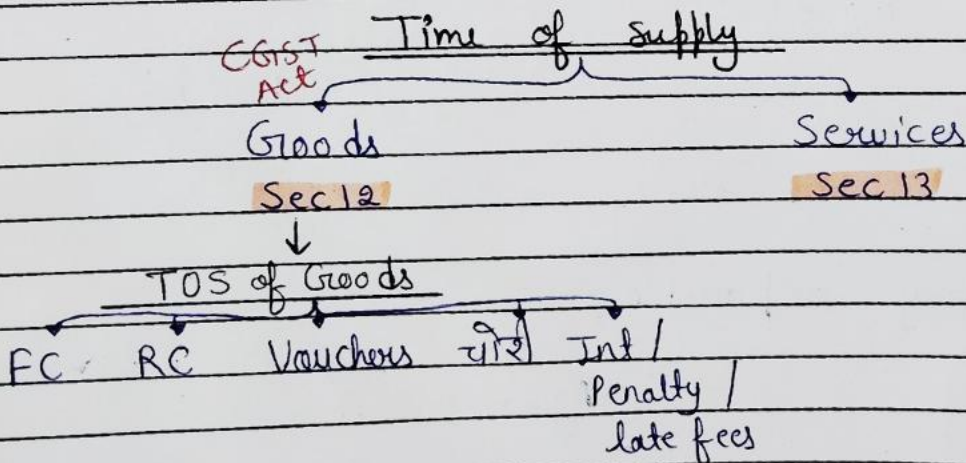 Time of supply
CGST
Act
Goods Services
Sec 12 Sec 13
TOS of Goods
FC RC Vouchers चोरी Int /
Penalty /
late fees